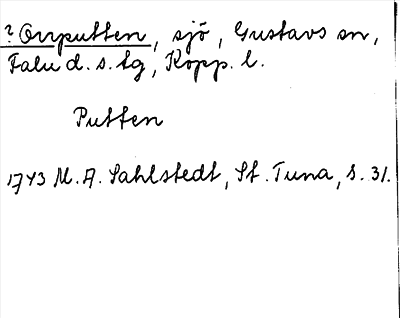 ? Orrputten, sjö, Gustavs sn,
Falu d. s. tg, Kopp. l.
Putten
1743 M. A. Sahlstedt, St. Tuna, s. 31.